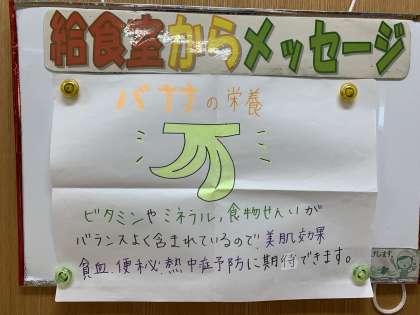 給食室からメッセージ
バナナの栄養
ビタミンやミネラル,食物せんいが
バランスよく含まれているので、美肌効果
貧血、便秘、熱中症予防に期待できます。
します。